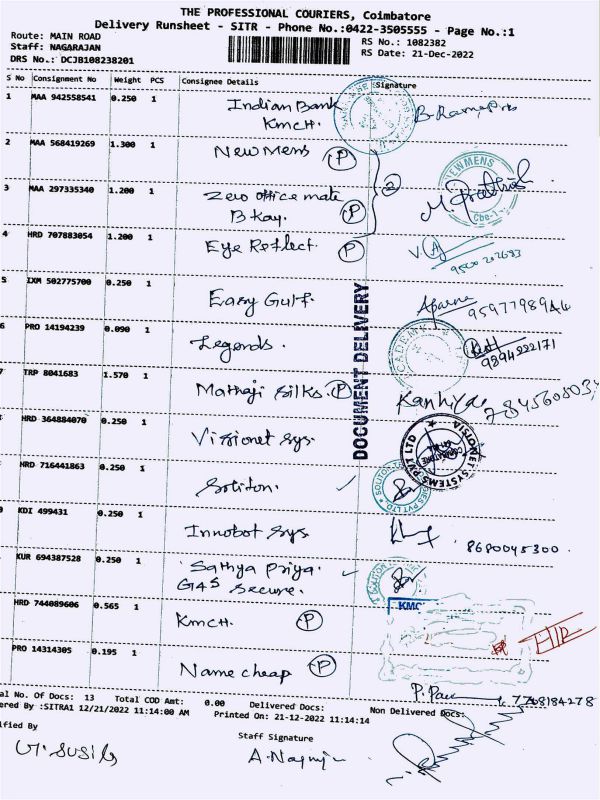 THE PROFESSIONAL COURIERS, Coimbatore
Delivery Runsheet - SITR - Phone No.:0422-3505555 - Page No.:1
Route: MAIN ROAD
RS No.: 1082382
Staff: NAGARAJAN
RS Date: 21-Dec-2022
DRS No.: DCJB108238201
S No Consignment No Weight PCS Consignee Details Signature
1 MAA 942558541 0.250 1 Indian Bank
KMCH.
2 MAA 568419269 1.300 1 New Mens P
NEWMENS
3 MAA 297335340 1.200 1 Zero office mate
B Kay. P
Cbe-1
4 HRD 707883054 1.200 1 Eye Reflect. P
5 IXM 502775700 0.250 1 Easy Gulf. Aparna
6 PRO 14194239 0.090 1 Legends.
9894222171
7 TRP 8041683 1.570 1 Mathaji Silks P Kanhiya
DOCUMENT DELIVERY
HRD 364884070 0.250 1 Vissionet Sys.
VISIONET SYSTEMS PVT LTD
HRD 716441863 0.250 1 Soliton.
KDI 499431 0.250 1 Innobot Sys 8680045300.
KUR 694387528 0.250 1 Sathya Priya.
G4S Secure.
HRD 744089606 0.565 1 KMCH. P
PRO 14314305 0.195 1 Name cheap P
7768184278
al No. Of Docs: 13 Total COD Amt: 0.00 Delivered Docs: Non Delivered Docs:
ered By :SITRA1 12/21/2022 11:14:00 AM Printed On: 21-12-2022 11:14:14
ified By Staff Signature